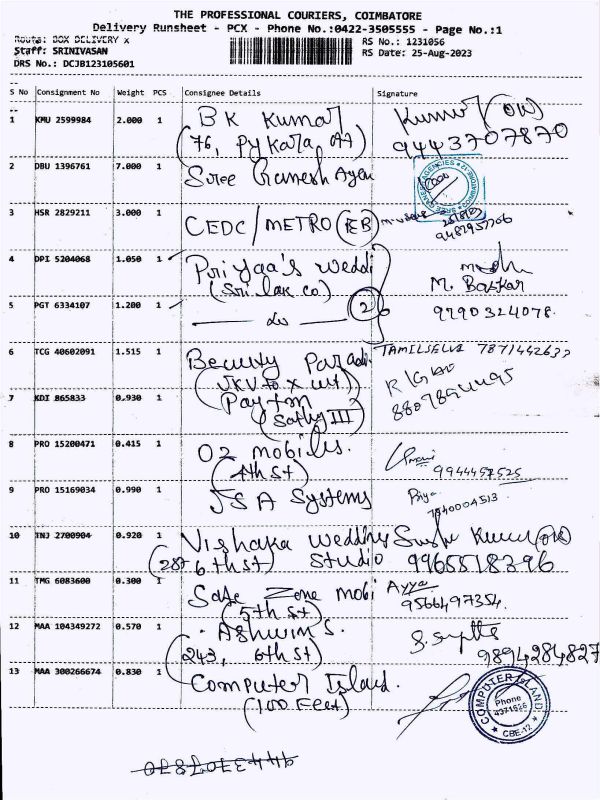 THE PROFESSIONAL COURIERS, COIMBATORE
Delivery Runsheet - PCX - Phone No.:0422-3505555 - Page No.:1
Route: BOX DELIVERY x
RS No.: 1231056
Staff: SRINIVASAN
RS Date: 25-Aug-2023
DRS No.: DCJB123105601
S No Consignment No Weight PCS Consignee Details Signature
1 KMU 2599984 2.000 1 BK Kumar Kumar (ow)
(76, Pykara 9443707870
2 DBU 1396761 7.000 1 Sree Ganesh Agen
3 HSR 2829211 3.000 1 CEDC/METRO (EB)
4 DPI 5204068 1.050 1 Priyaa's weddi
(Sri lak co) M. Baskar
5 PGT 6334107 1.200 1 do 2 9790324078.
6 TCG 40602091 1.515 1 Beauty Parad TAMILSELVI
7 KDI 865833 0.930 1 Paytm
(Sathy III)
8 PRO 15200471 0.415 1 O2 mobiles.
(4th st) 9944457525
9 PRO 15169034 0.990 1 JSA Systems Priya
7840004513
10 TNJ 2700904 0.920 1 Vishaka wedding
(287 6th st) Studio 9965518396
11 TMG 6083600 0.300 1 Safe Zone mobi Ayya
(5th st) 9566497354.
12 MAA 104349272 0.570 1 Ashwin S.
(243, 6th st) 9894284827
13 MAA 300266674 0.830 1 Computer Island.
(100 Feet)
COMPUTER ISLAND
Phone
4371826
CBE-12
9443707870